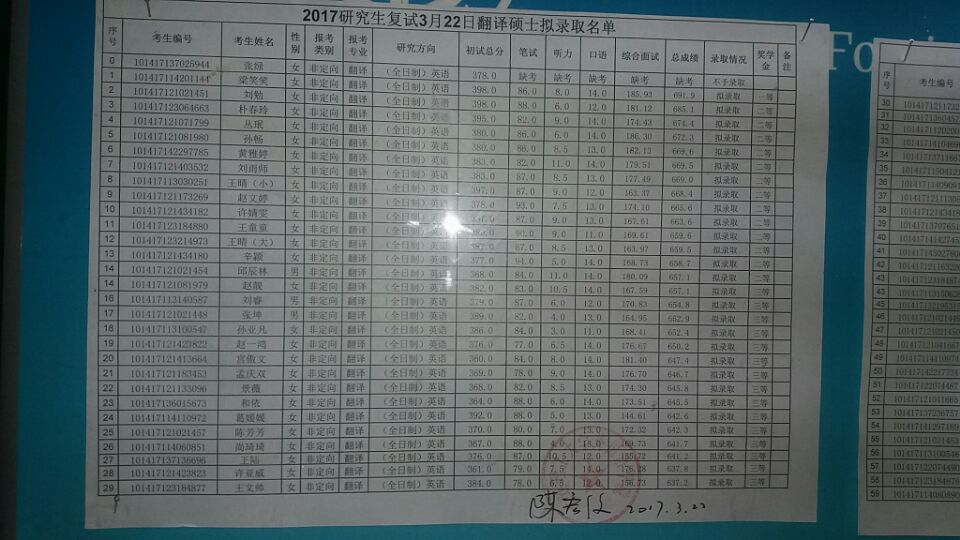 2017研究生复试3月22日翻译硕士拟录取名单
序号 考生编号 考生姓名 性别 报考类别 报考专业 研究方向 初试总分 笔试 听力 口语 综合面试 总成绩 录取情况 奖学金 备注
0 101417137025944 张绿 女 非定向 翻译 (全日制)英语 378.0 缺考 缺考 缺考 缺考 缺考 不予录取
1 101417114201144 梁笑笑 女 非定向 翻译 (全日制)英语 398.0 86.0 8.0 14.0 185.93 691.9 拟录取 一等
2 101417121021451 刘勉 女 非定向 翻译 (全日制)英语 398.0 88.0 6.0 12.0 181.12 685.1 拟录取 二等
3 101417123064663 朴春玲 女 非定向 翻译 (全日制)英语 395.0 82.0 9.0 14.0 174.43 674.4 拟录取 二等
4 101417121071799 丛珉 女 非定向 翻译 (全日制)英语 380.0 86.0 6.0 14.0 186.30 672.3 拟录取 二等
5 101417121081980 孙畅 女 非定向 翻译 (全日制)英语 380.0 86.0 8.5 13.0 182.13 669.6 拟录取 二等
6 101417142297785 黄雅婷 女 非定向 翻译 (全日制)英语 383.0 82.0 11.0 14.0 179.51 669.5 拟录取 二等
7 101417121403532 刘雨师 女 非定向 翻译 (全日制)英语 383.0 87.0 8.5 13.0 177.49 669.0 拟录取 二等
8 101417113030251 王晴(小) 女 非定向 翻译 (全日制)英语 397.0 87.0 9.0 12.0 163.37 668.4 拟录取 二等
9 101417121173269 赵文婷 女 非定向 翻译 (全日制)英语 378.0 93.0 7.5 13.0 174.10 665.6 拟录取 二等
10 101417121434182 许婧雯 女 非定向 翻译 (全日制)英语 87.0 9.0 13.0 167.61 663.6 拟录取 二等
11 101417123184880 王童童 女 非定向 翻译 (全日制)英语 90.0 9.0 11.0 169.61 659.6 拟录取 二等
12 101417123214973 王晴(大) 女 非定向 翻译 (全日制)英语 87.0 8.5 13.0 163.97 659.5 拟录取 二等
13 101417121434180 辛颖 女 非定向 翻译 (全日制)英语 377.0 94.0 5.0 14.0 168.73 658.7 拟录取 二等
14 101417121021454 邱辰林 男 非定向 翻译 (全日制)英语 368.0 84.0 11.0 14.0 180.09 657.1 拟录取 二等
15 101417121081979 赵靓 女 非定向 翻译 (全日制)英语 382.0 83.0 10.5 14.0 167.59 657.1 拟录取 三等
16 101417113140587 刘睿 男 非定向 翻译 (全日制)英语 379.0 87.0 6.0 12.0 170.83 654.8 拟录取 三等
17 101417121021448 张坤 男 非定向 翻译 (全日制)英语 389.0 82.0 4.0 13.0 164.95 652.9 拟录取 三等
18 101417113100547 孙亚凡 女 非定向 翻译 (全日制)英语 386.0 84.0 3.0 11.0 168.41 652.4 拟录取 三等
19 101417121423822 赵一鸿 女 非定向 翻译 (全日制)英语 376.0 77.0 6.5 14.0 176.67 650.2 拟录取 三等
20 101417121413664 宫傲文 女 非定向 翻译 (全日制)英语 360.0 84.0 8.0 14.0 181.40 647.4 拟录取 三等
21 101417121183453 孟庆双 女 非定向 翻译 (全日制)英语 369.0 78.0 9.0 14.0 176.70 646.7 拟录取 三等
22 101417121133096 景薇 女 非定向 翻译 (全日制)英语 368.0 82.0 8.5 13.0 174.30 645.8 拟录取 三等
23 101417136015673 和依 女 非定向 翻译 (全日制)英语 364.0 88.0 6.0 14.0 173.51 645.5 拟录取 三等
24 101417114110972 葛媛媛 女 非定向 翻译 (全日制)英语 392.0 88.0 5.0 13.0 144.61 642.6 拟录取 三等
25 101417121021457 陈芳芳 女 非定向 翻译 (全日制)英语 370.0 80.0 7.0 13.0 172.32 642.3 拟录取 三等
26 101417114060851 尚琦琦 女 非定向 翻译 (全日制)英语 367.0 88.0 4.0 13.0 169.73 641.7 拟录取 三等
27 101417137136696 王陆 女 非定向 翻译 (全日制)英语 376.0 87.0 10.5 12.0 155.72 641.2 拟录取 三等
28 101417121423823 许亚威 女 非定向 翻译 (全日制)英语 361.0 79.0 7.5 14.0 176.28 637.8 拟录取 三等
29 101417123184877 王文帅 女 非定向 翻译 (全日制)英语 384.0 78.0 6.5 12.0 156.73 637.2 拟录取 三等
2017.3.22
Fo
考生编号
30
31
32
33
34
35
36
37
38
39
40
41
42
43
44
45
46
47
48
49
50
51
52
53
54
55
56
57
58
59